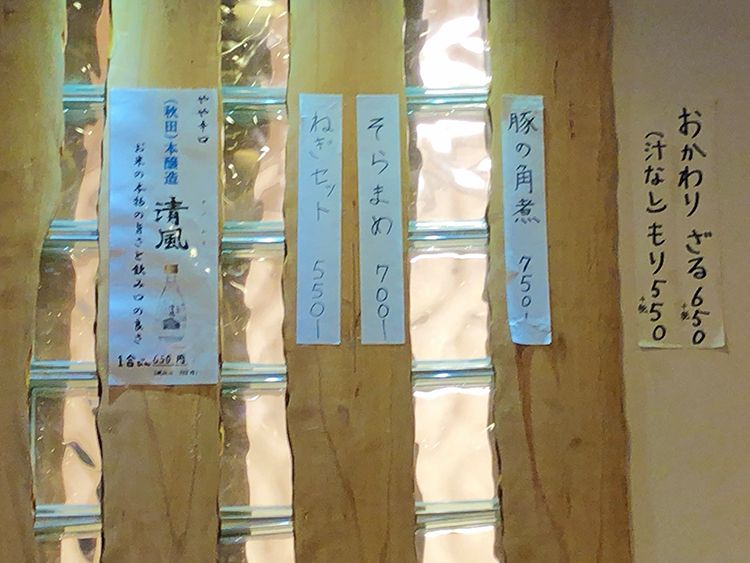 おかわり ざる 650+税
(汁なし)もり 550+税
豚の角煮 750-
そらまめ 700-
ねぎセット 550-
やや辛口
(秋田)本醸造
清風
お米の本物の旨さと飲み口の良さ
1合びん 650円